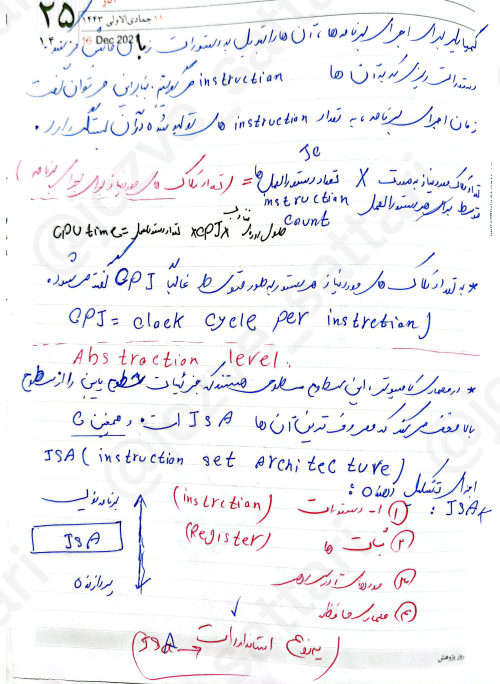 ۲۵
۱۱ جمادی‌الاولی ۱۴۴۳
16 Dec 2021
کامپایلر برای اجرای برنامه‌ها، آن‌ها را تبدیل به دستورات زبان ماشین می‌کند
دستورات ریزی که به آن‌ها instruction می‌گوییم. بنابراین می‌توان گفت
زمان اجرای برنامه، به تعداد instruction های تولید شده در آن بستگی دارد.
Ic
(تعداد کلاک های مورد نیاز برای اجرای برنامه) = تعداد دستورالعمل‌ها X تعداد کلاک مورد نیاز به صورت
متوسط برای هر دستورالعمل instruction count
CPU time = تعداد دستورالعمل X CPI X طول
* به تعداد کلاک های مورد نیاز هر دستور به طور متوسط غالباً CPI گفته می‌شود.
CPI = clock cycle per instretion)
Abstraction level:
* در معماری کامپیوتر، این سطوح سطوحی هستند که جزئیات سطوح پایین را از سطوح
بالا مخفی می‌کند که معروف ترین آن‌ها ISA است و همچنین
ISA (instruction set architecture)
اجزای تشکیل دهنده ISA:
برنامه‌نویسی
ISA
پردازنده
۱- دستورات (instrction)
۲ ثبات ها (Register)
۳ مدهای آدرس‌دهی
۴ معماری حافظه
(یه نوع استاندارد است → ISA)
روز پژوهش